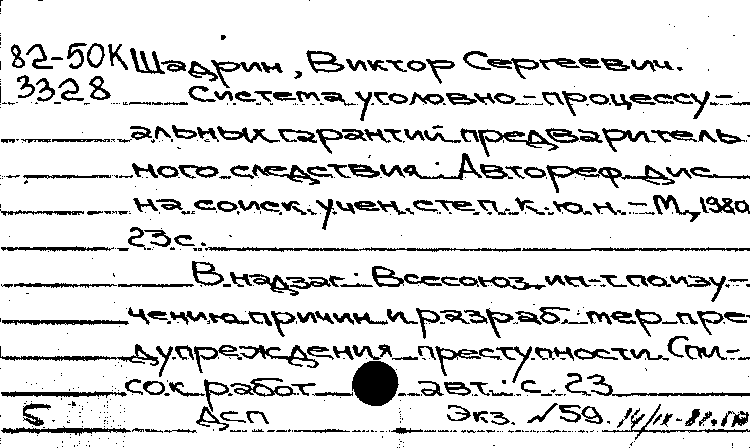 82-50К Шадрин, Виктор Сергеевич.
3328 Система уголовно-процессу-
альных гарантий предваритель-
ного следствия: Автореф. дис.
на соиск. учен. степ. к.ю.н. - М., 1980
23 с.
В надзаг.: Всесоюз. ин-т по изу-
чению причин и разраб. мер пре-
дупреждения преступности. Спи-
сок работ авт.: с. 23
Б ДСП Экз. №59.